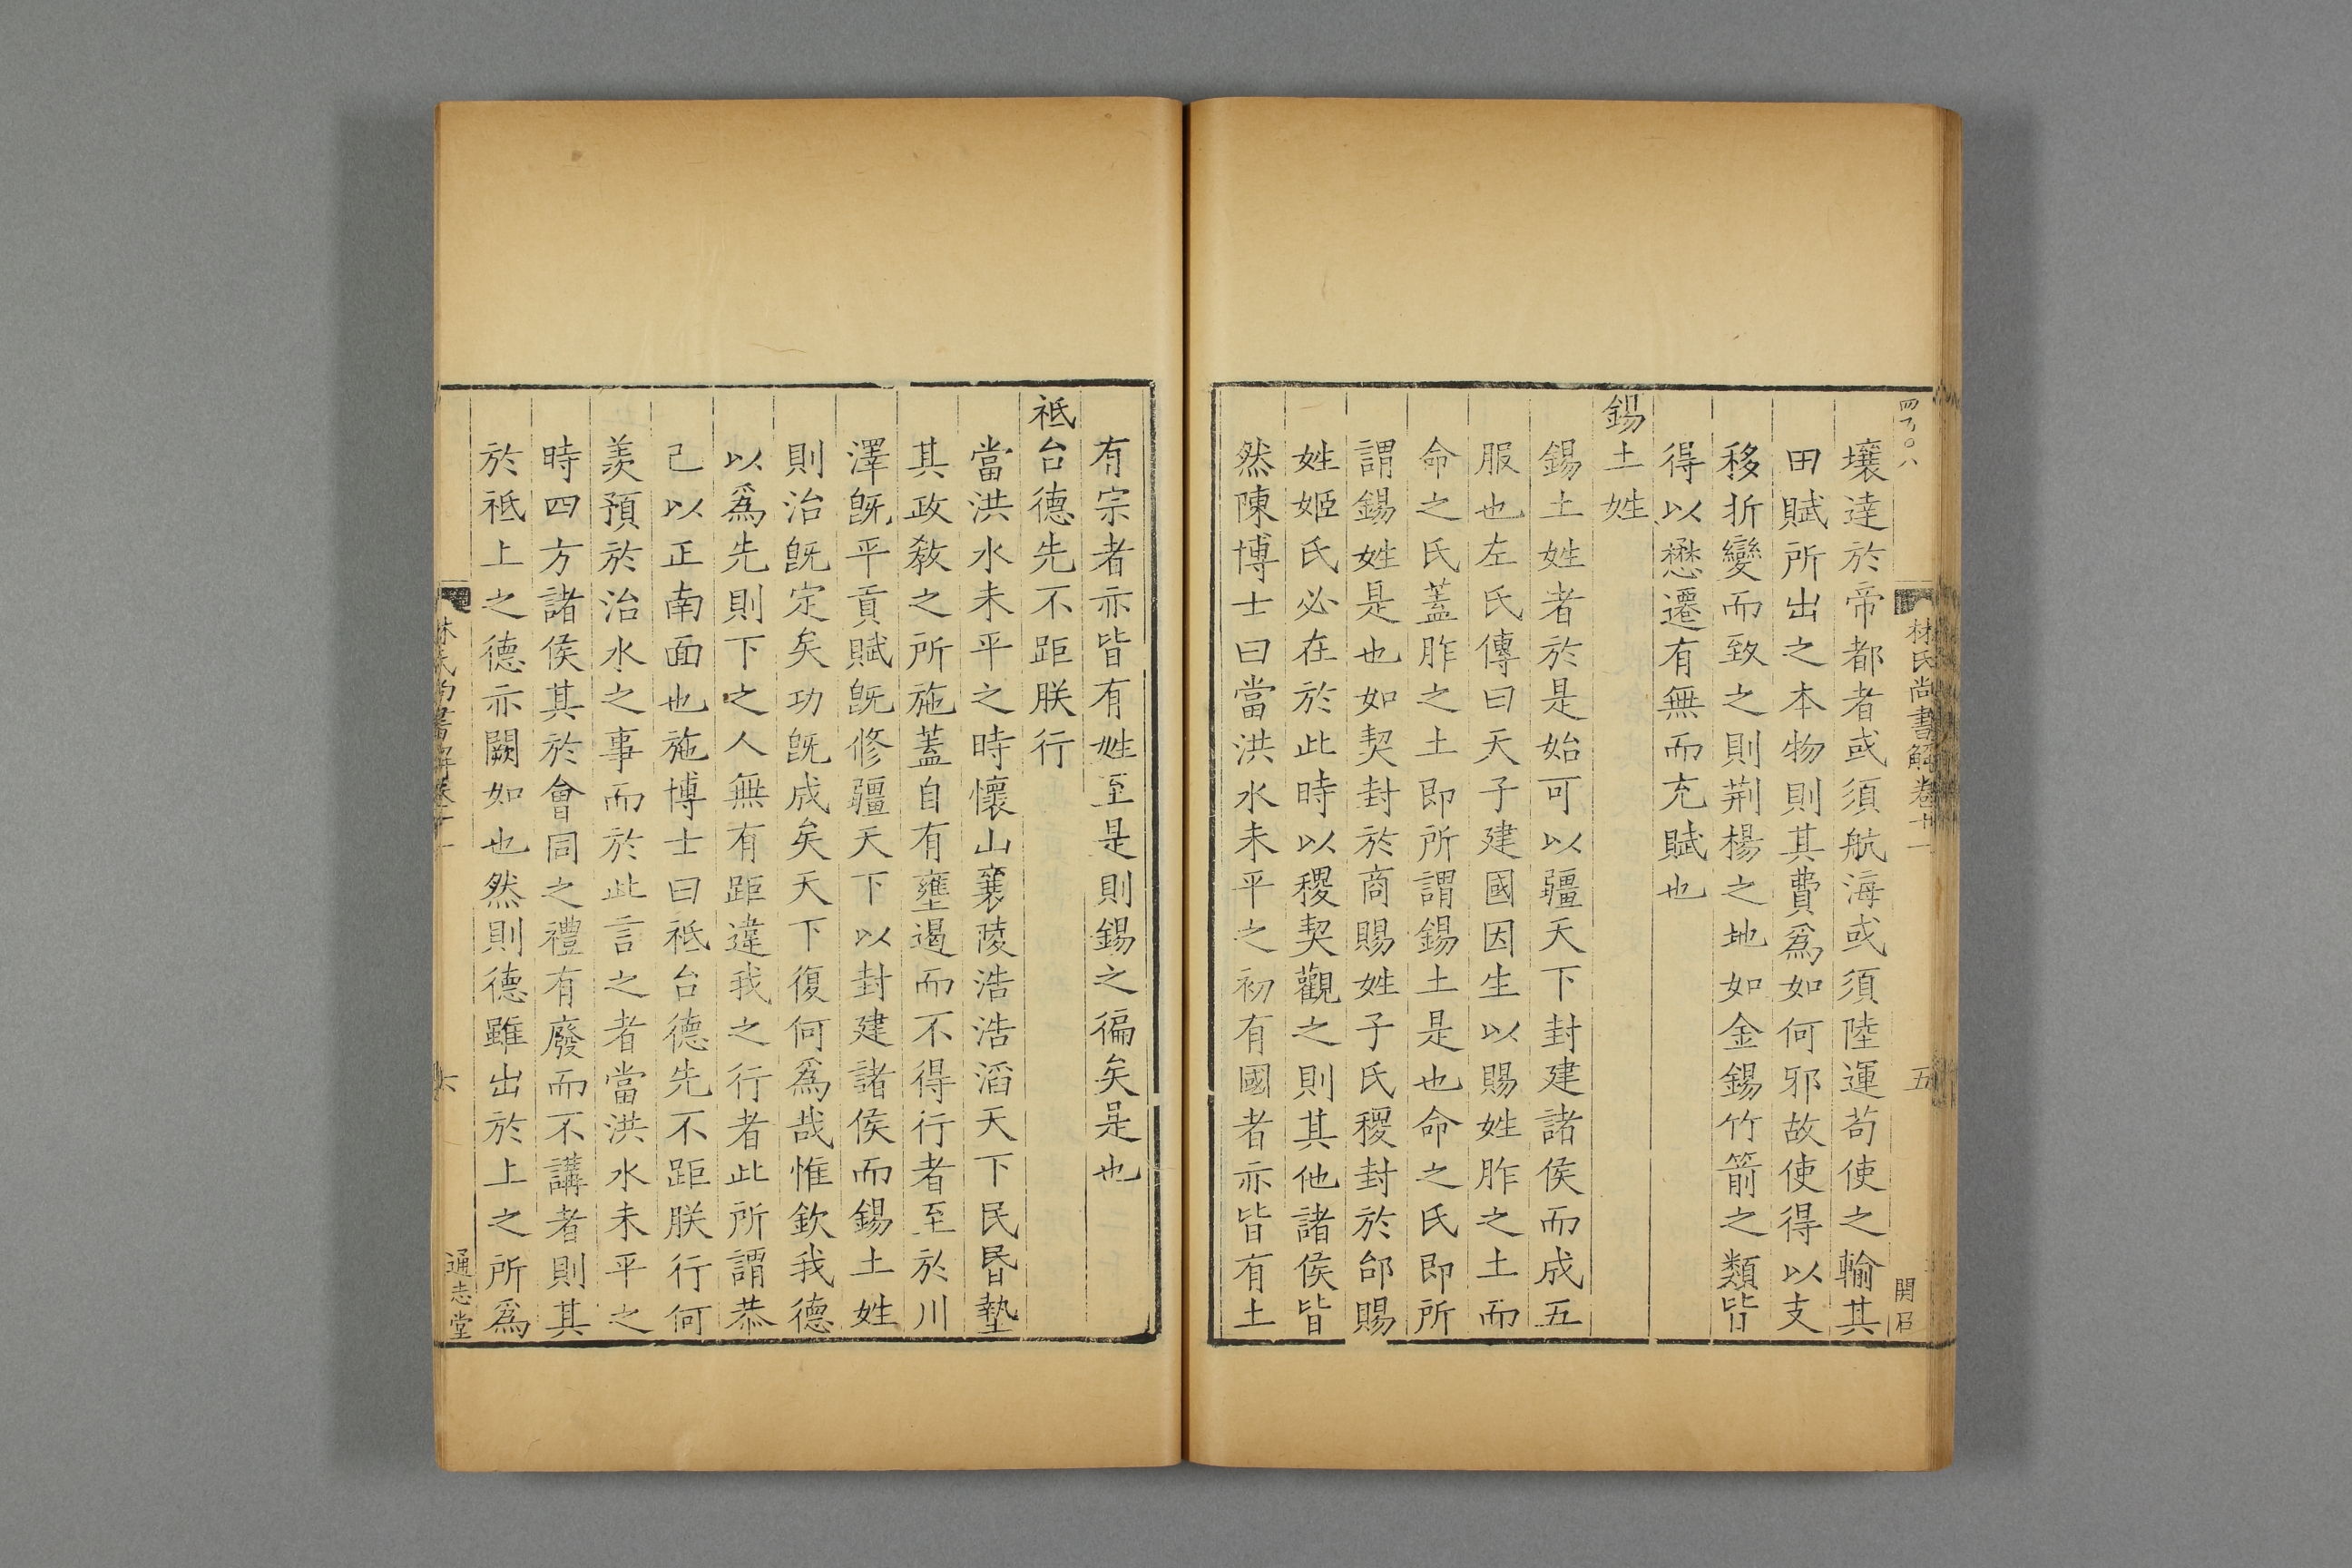 林氏尚書解卷十一
五
壤達於帝都者或須航海或須陸運苟使之輸其
田賦所出之本物則其費爲如何邪故使得以支
移折變而致之則荆楊之地如金錫竹箭之類皆
得以懋遷有無而充賦也
錫土姓
錫土姓者於是始可以疆天下封建諸侯而成五
服也左氏傳曰天子建國因生以賜姓胙之土而
命之氏蓋胙之土即所謂錫土是也命之氏即所
謂錫姓是也如契封於商賜姓子氏稷封於邰賜
姓姬氏必在於此時以稷契觀之則其他諸侯皆
然陳博士曰當洪水未平之初有國者亦皆有土
有宗者亦皆有姓至是則錫之徧矣是也
祗台德先不距朕行
當洪水未平之時懷山襄陵浩浩滔天下民昬墊
其政教之所施蓋自有壅遏而不得行者至於川
澤旣平貢賦旣修疆天下以封建諸侯而錫土姓
則治旣定矣功旣成矣天下復何爲哉惟欽我德
以爲先則下之人無有距違我之行者此所謂恭
己以正南面也施博士曰祗台德先不距朕行何
羨預於治水之事而於此言之者當洪水未平之
時四方諸侯其於會同之禮有廢而不講者則其
於祗上之德亦闕如也然則德雖出於上之所爲
林氏尚書解卷十一
六
通志堂